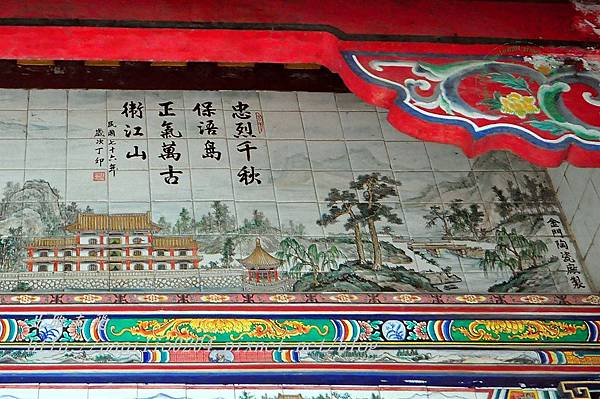 忠烈千秋
保浯島
正氣萬古
衛江山
民國七十六年
歲次丁卯
金門陶瓷廠製